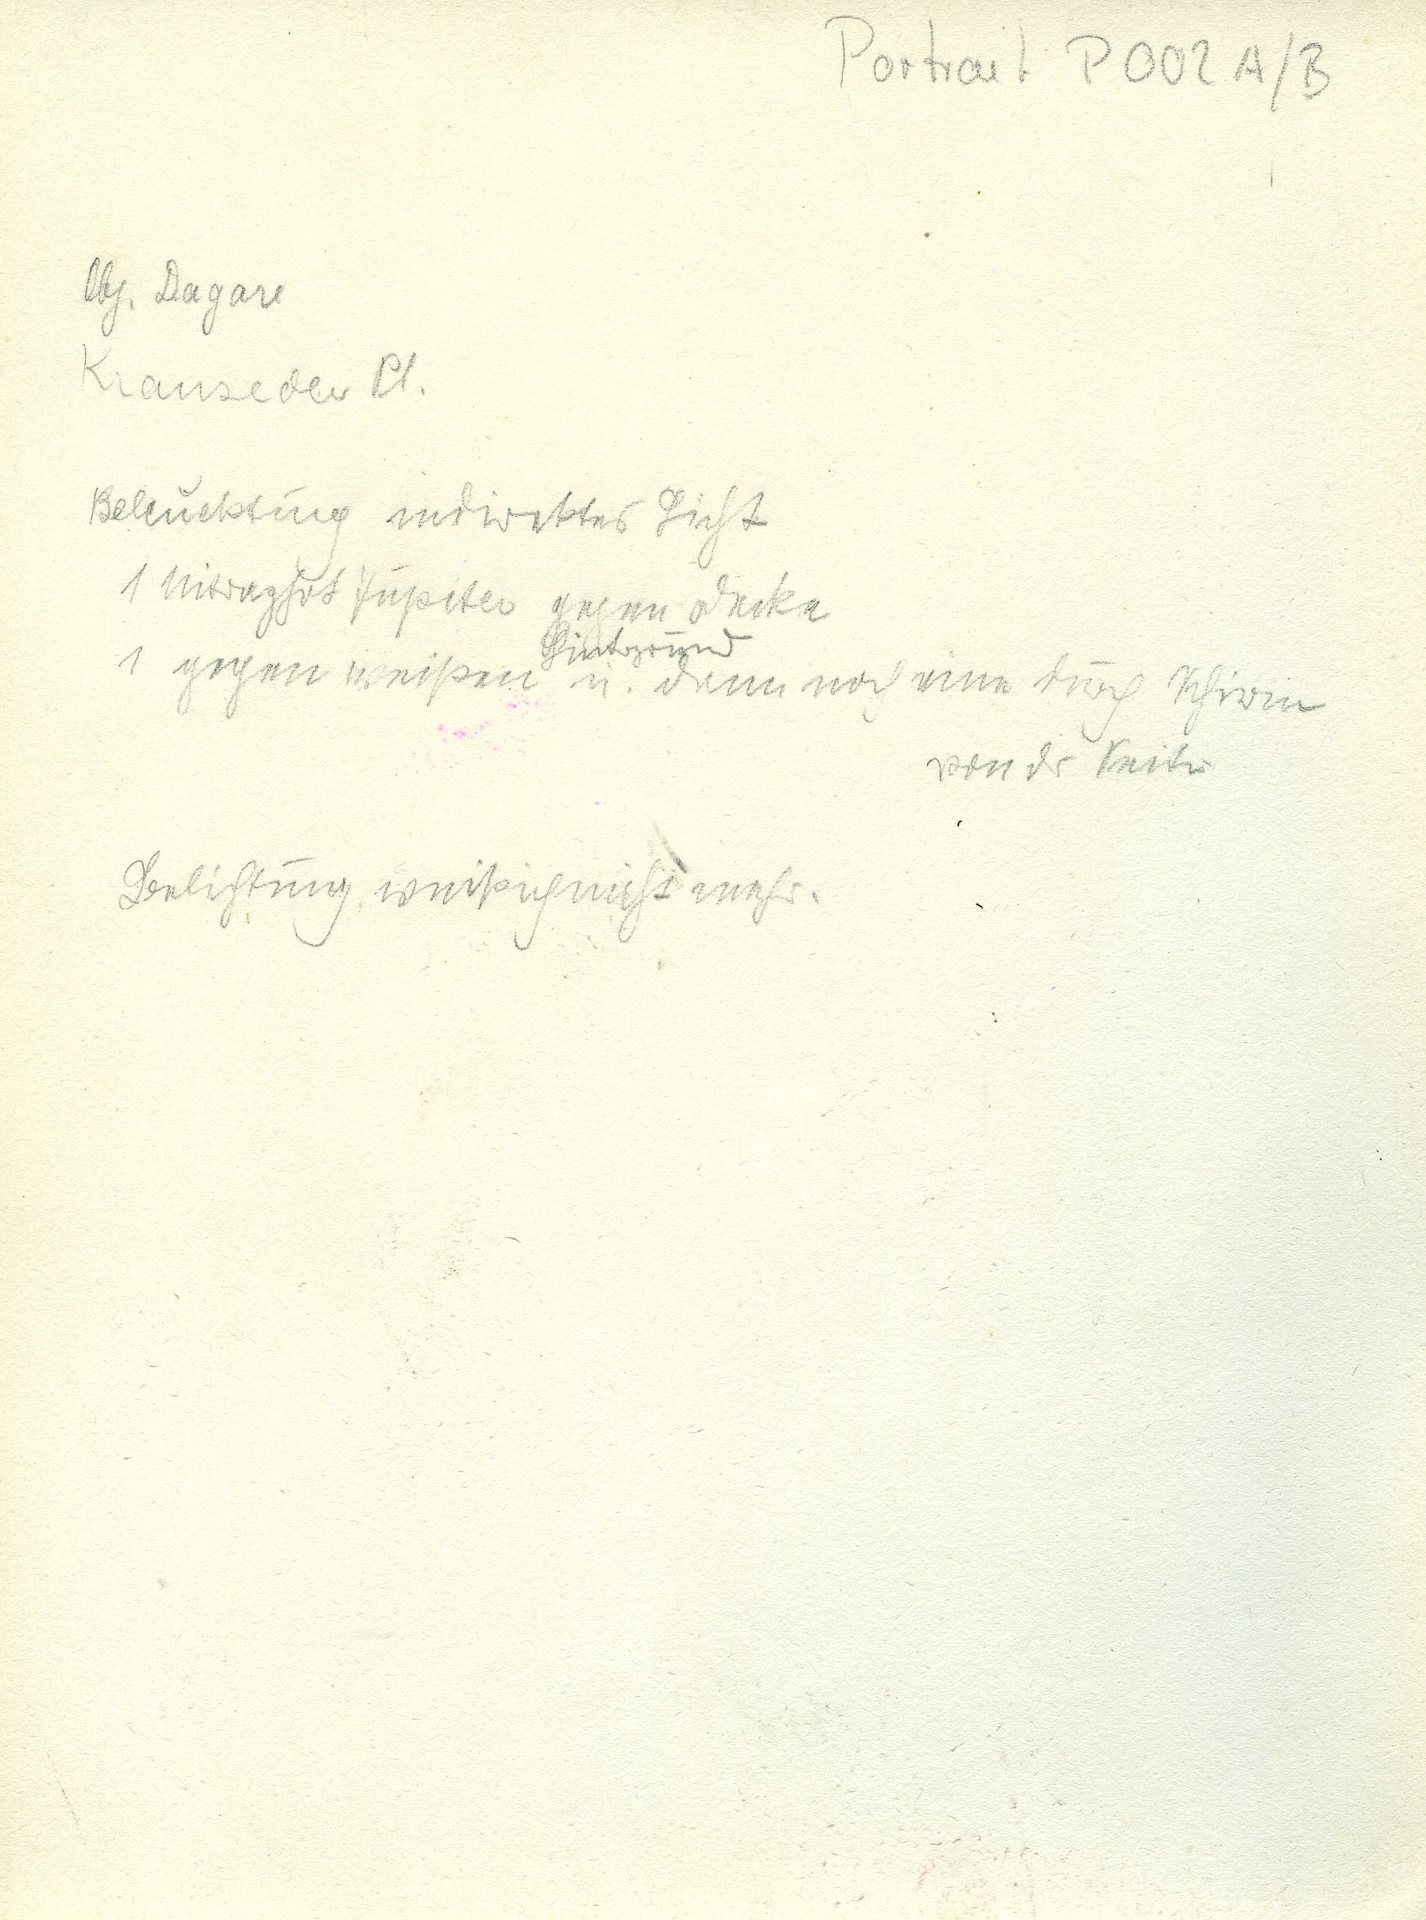 Portrait P 002 A/B
Obj. Dagare
Kranseder Pl.
Beleuchtung indirektes Licht
1 Nitraphot Jupiter gegen Decke
1 gegen weißen Hintergrund u. dann noch eine durch Schirm
von der Seite
Belichtung weiß ich nicht mehr.